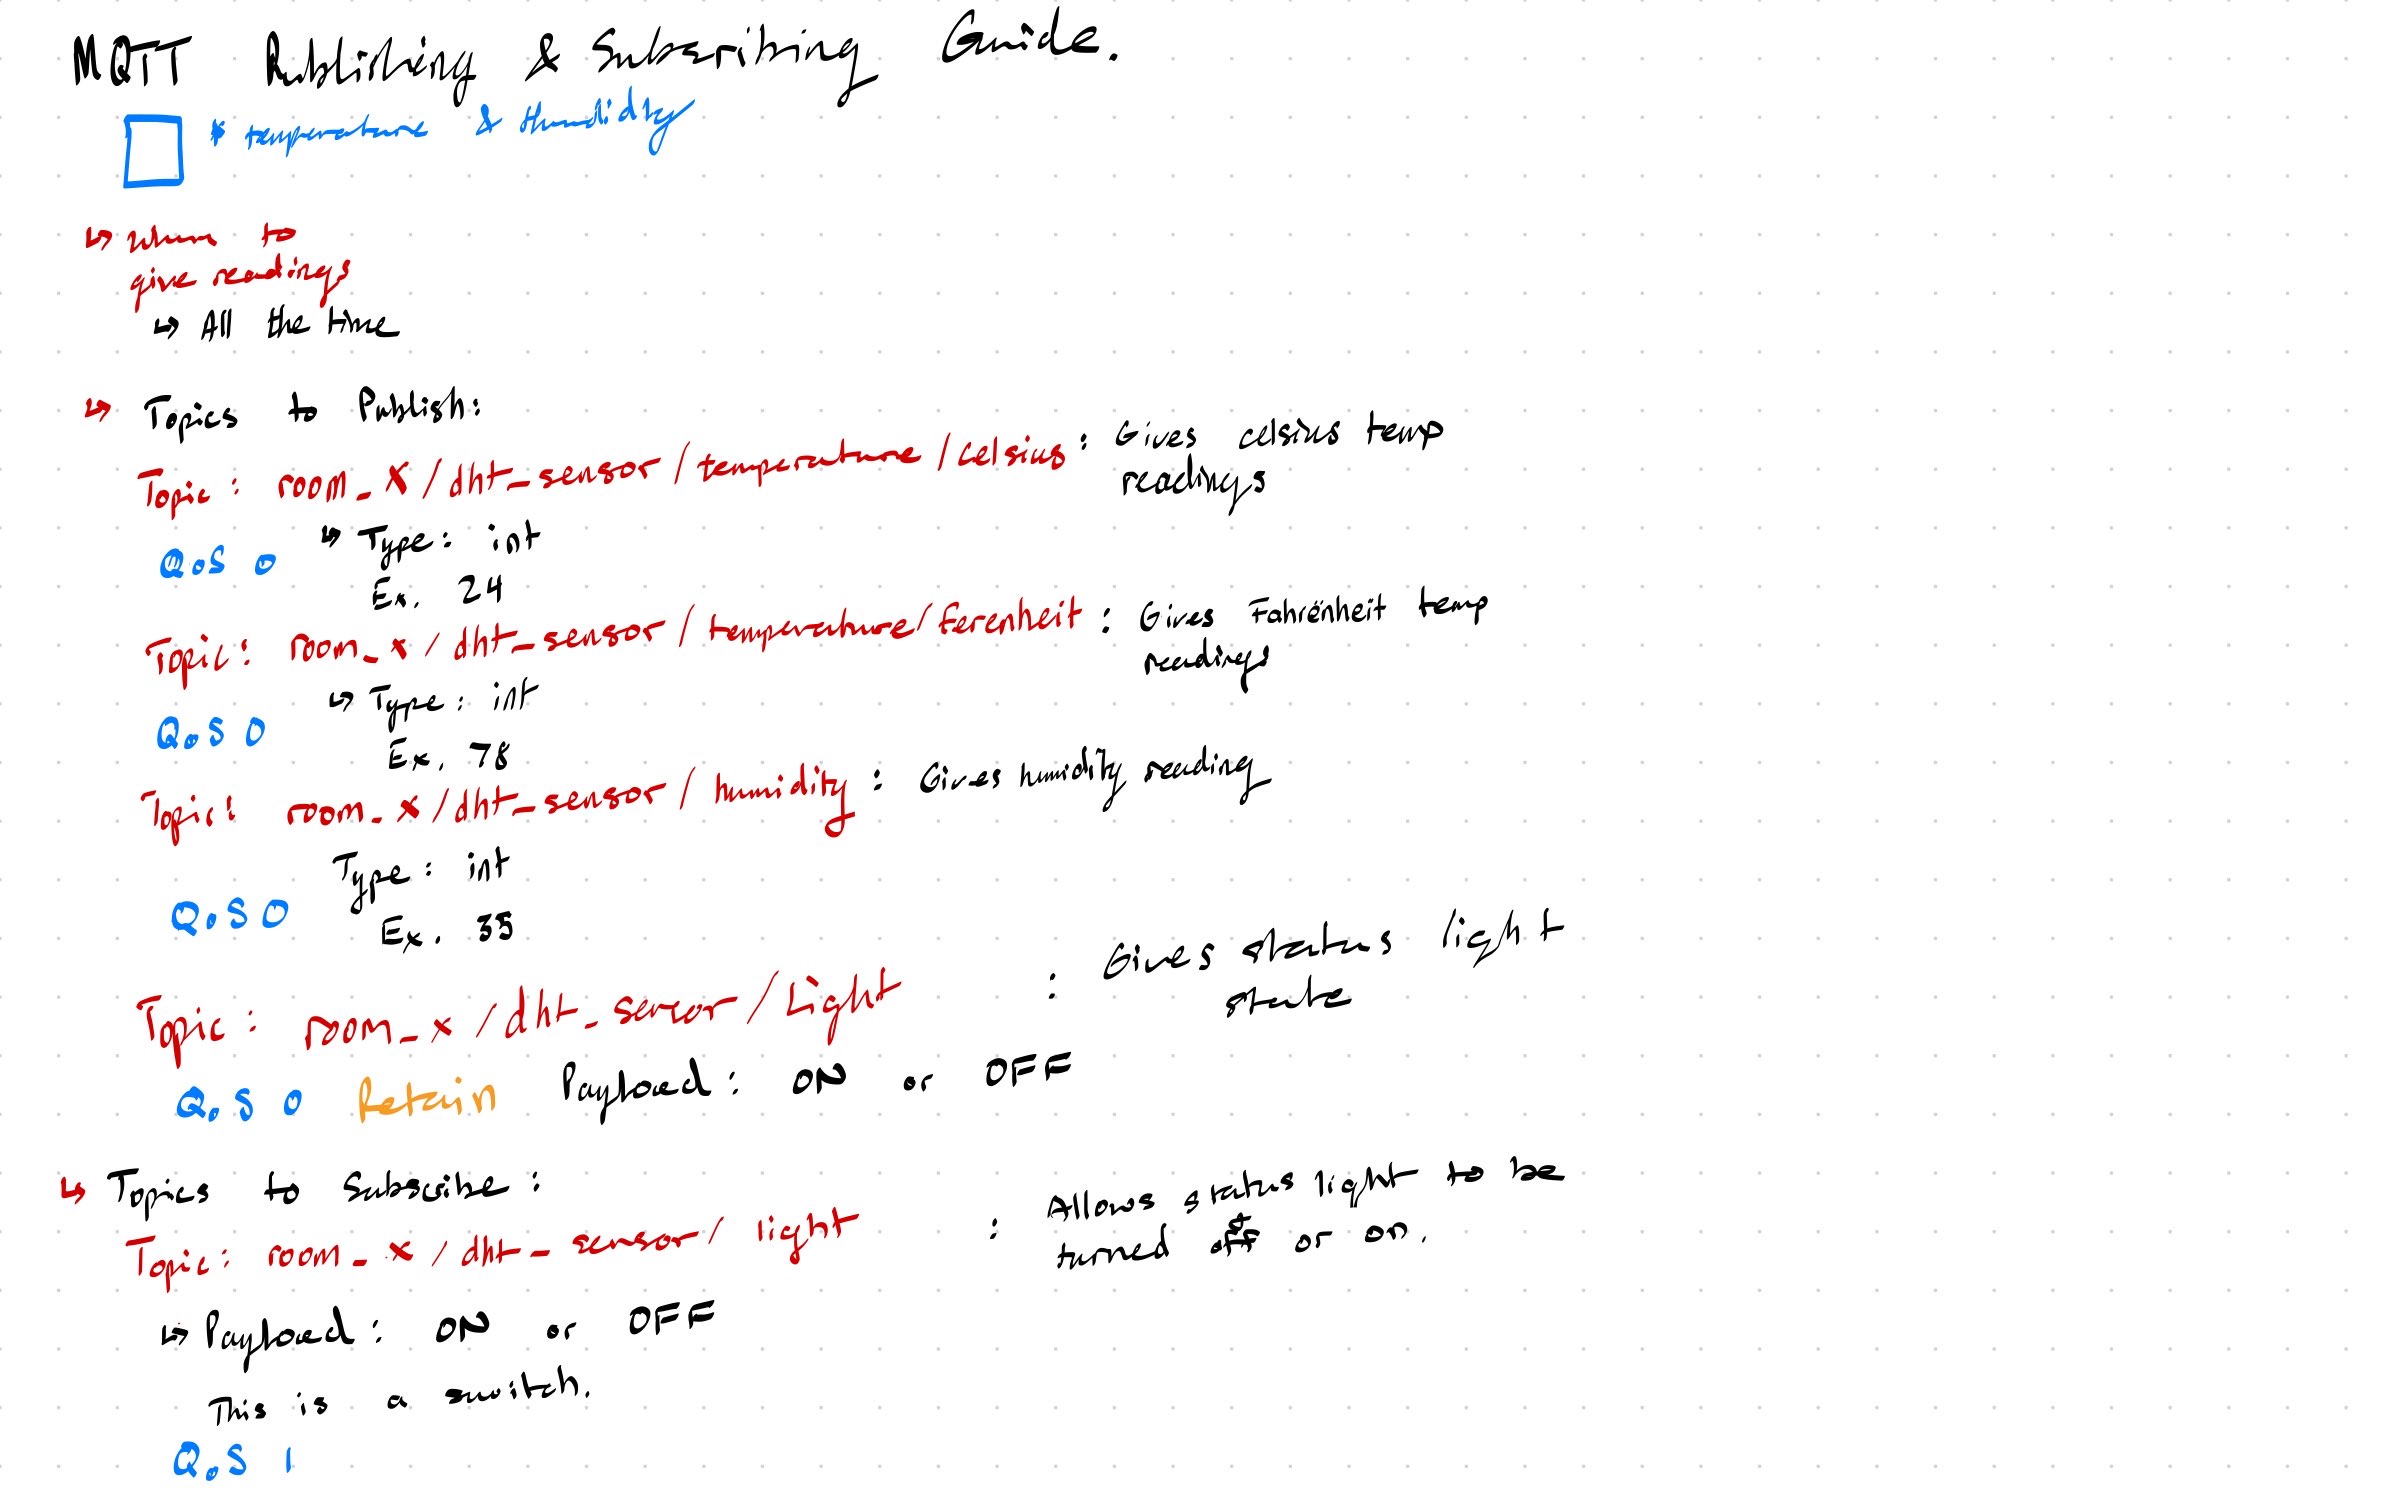 MQTT Publishing & Subscribing Guide.
* temperature & Humidity
↳ When to
give readings
↳ All the time
↳ Topics to Publish:
Topic: room_X/dht_sensor/temperature/celsius: Gives celsius temp
readings
QoS 0 ↳ Type: int
Ex. 24
Topic: room_x/dht_sensor/temperature/ferenheit: Gives Fahrenheit temp
readings
QoS 0 ↳ Type: int
Ex. 78
Topic: room_x/dht_sensor/humidity: Gives humidity reading
Type: int
QoS 0 Ex. 35
Topic: room_x/dht_sensor/Light : Gives status light
state
QoS 0 Retain Payload: ON or OFF
↳ Topics to Subscribe:
Topic: room_x/dht_sensor/light : Allows status light to be
turned off or on.
↳ Payload: ON or OFF
This is a switch.
QoS 1